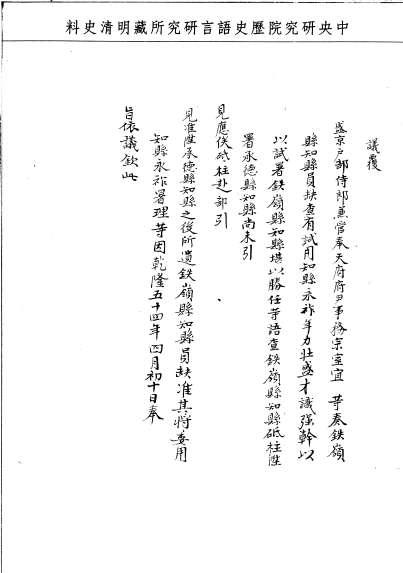 中央研究院歷史語言研究所藏明清史料
議覆
盛京戶部侍郎兼管奉天府府尹事務宗室宜 等奏鉄嶺
縣知縣員缺查有試用知縣永祚年力壯盛才識强幹以
以試署鉄嶺縣知縣堪以勝任等語查鉄嶺縣知縣砥柱陞
署承德縣知縣尚未引
見應俟砥柱赴部引
見准陞承德縣知縣之後所遺鉄嶺縣知縣員缺准其將委用
知縣永祚署理等因乾隆五十四年四月初十日奉
旨依議欽此